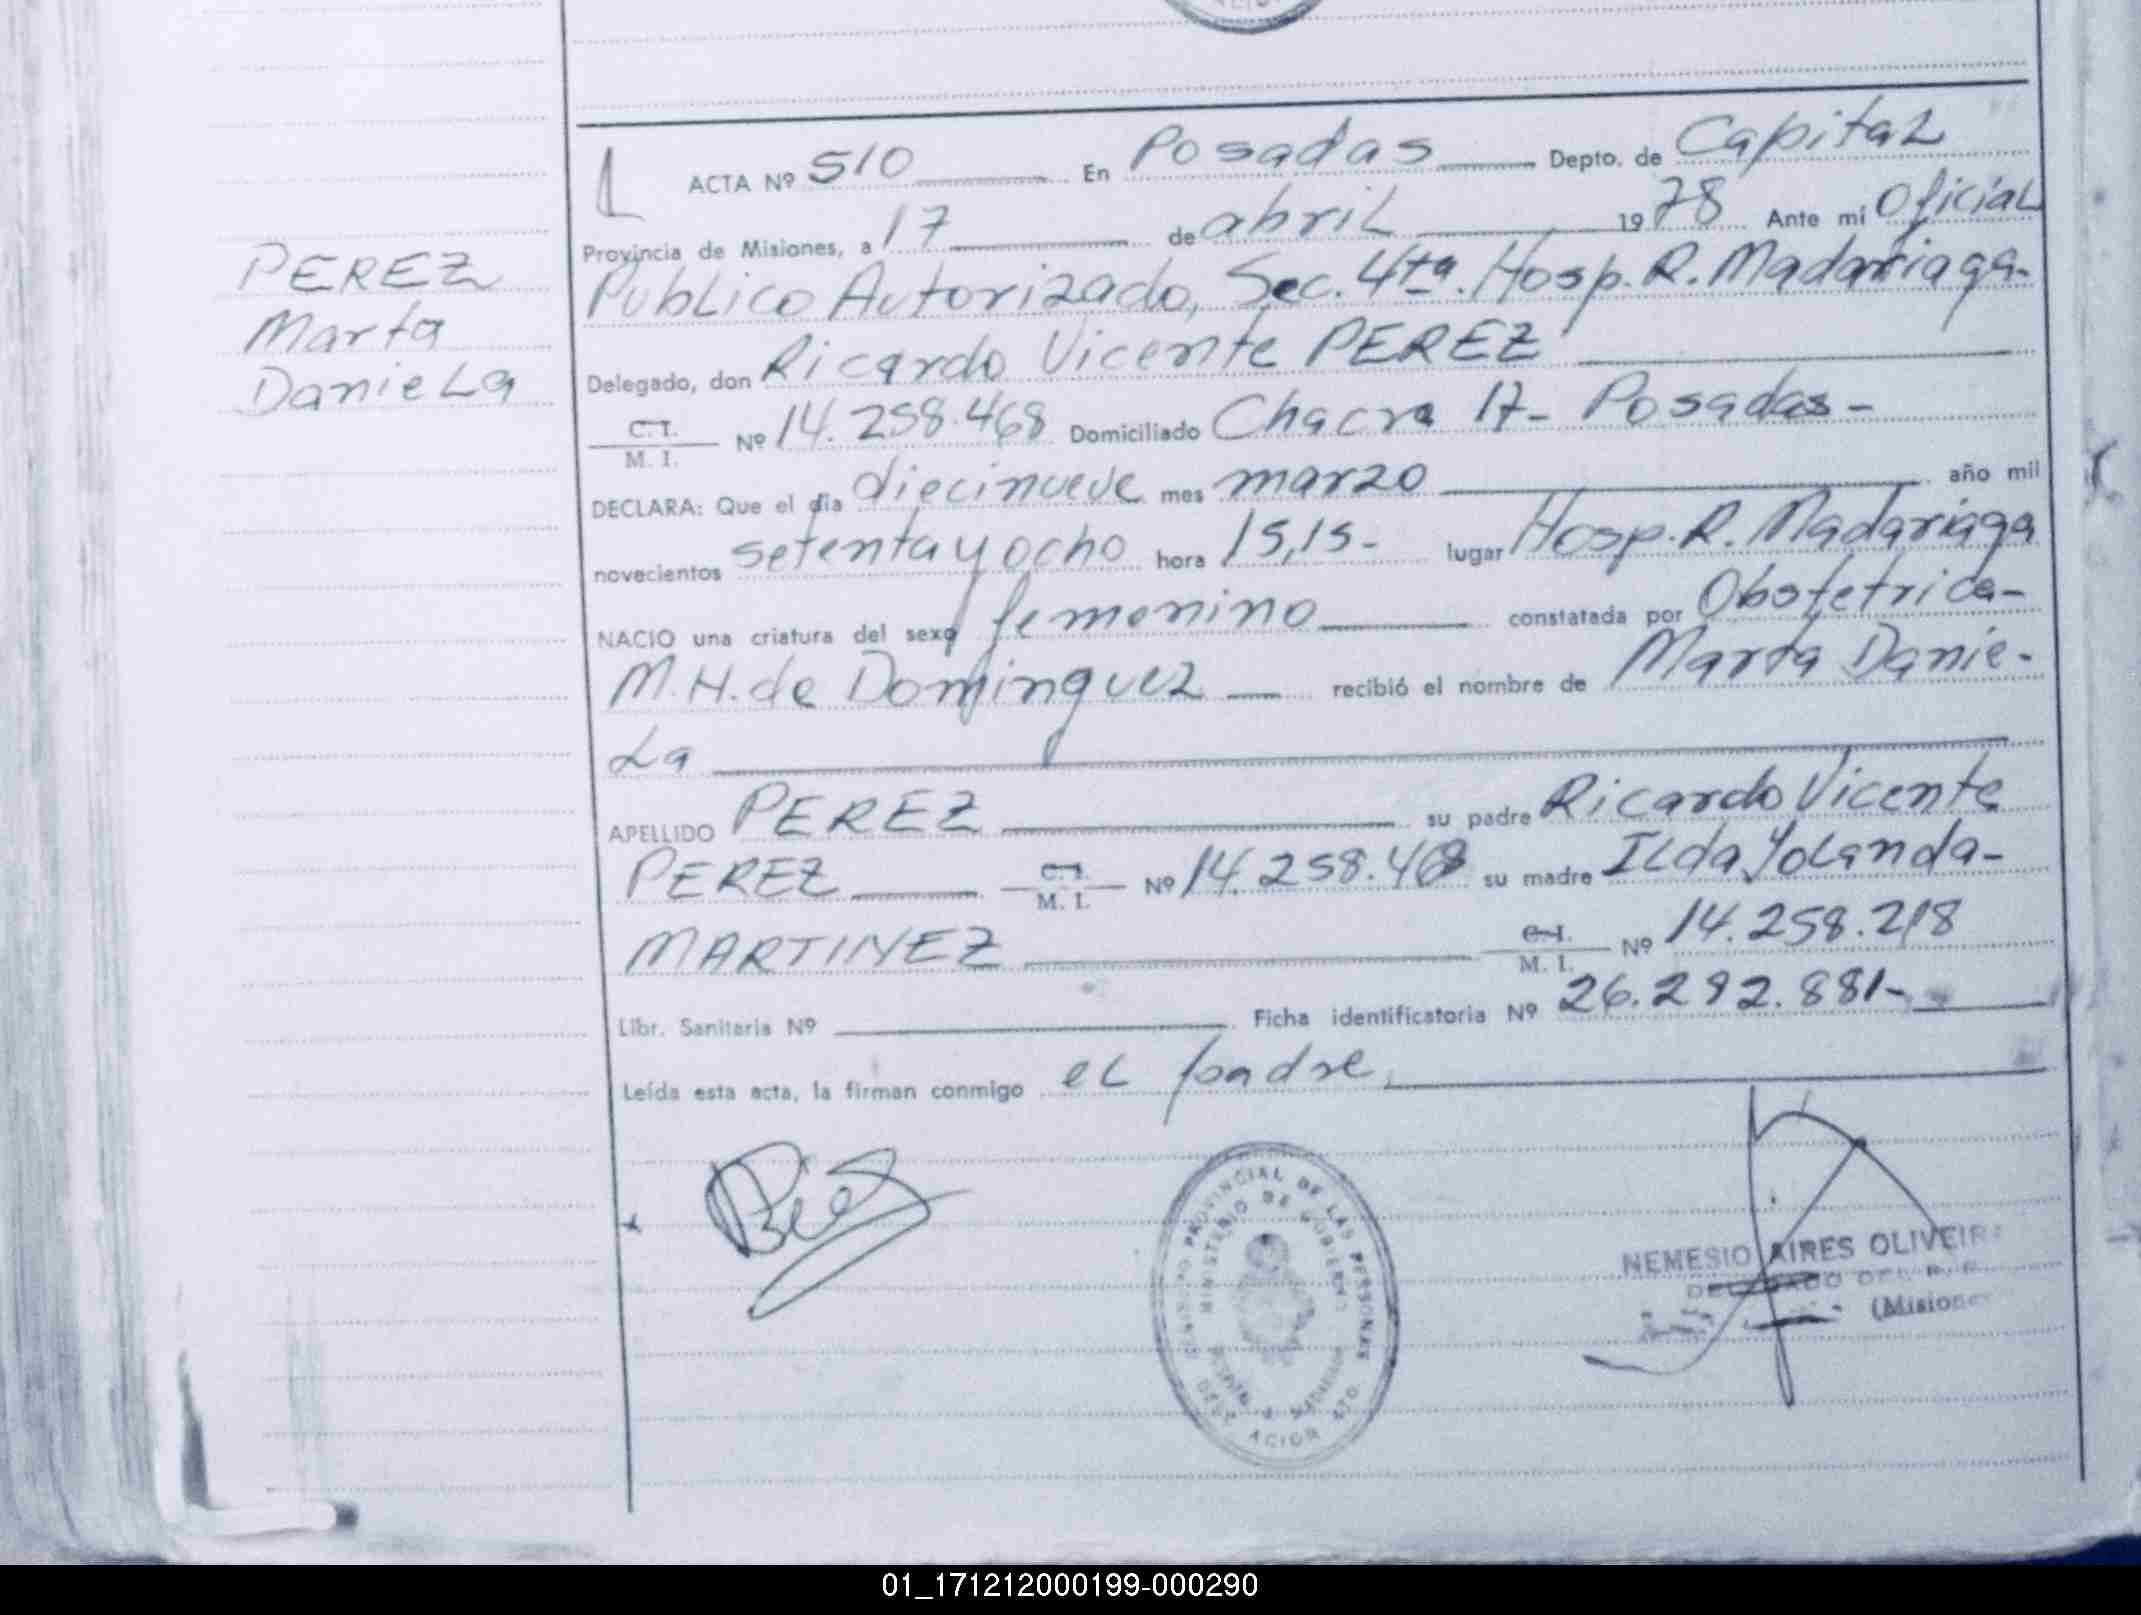 PEREZ
Marta
Daniela
ACTA Nº 510 En Posadas Depto. de Capital
Provincia de Misiones, a 17 de abril 1978 Ante mí Oficial
Publico Autorizado, Sec. 4ta. Hosp. R. Madariaga-
Delegado, don Ricardo Vicente PEREZ
C.I.
M. I. Nº 14.258.468 Domiciliado Chacra 17- Posadas-
DECLARA: Que el día diecinueve mes marzo año mil
novecientos setenta y ocho hora 15,15- lugar Hosp. R. Madariaga
NACIO una criatura del sexo femenino constatada por Obstetrica-
M.H. de Dominguez recibió el nombre de Marta Danie-
la
APELLIDO PEREZ su padre Ricardo Vicente
PEREZ C.I. M. I. Nº 14.258.468 su madre Ilda Yolanda-
MARTINEZ C.I. M. I. Nº 14.258.218
Libr. Sanitaria Nº Ficha identificatoria Nº 26.292.881-
Leída esta acta, la firman conmigo el padre
PROVINCIAL DE LAS PERSONAS
MINISTERIO DE GOBIERNO
NEMESIO AIRES OLIVEIR
(Misiones
01_171212000199-000290